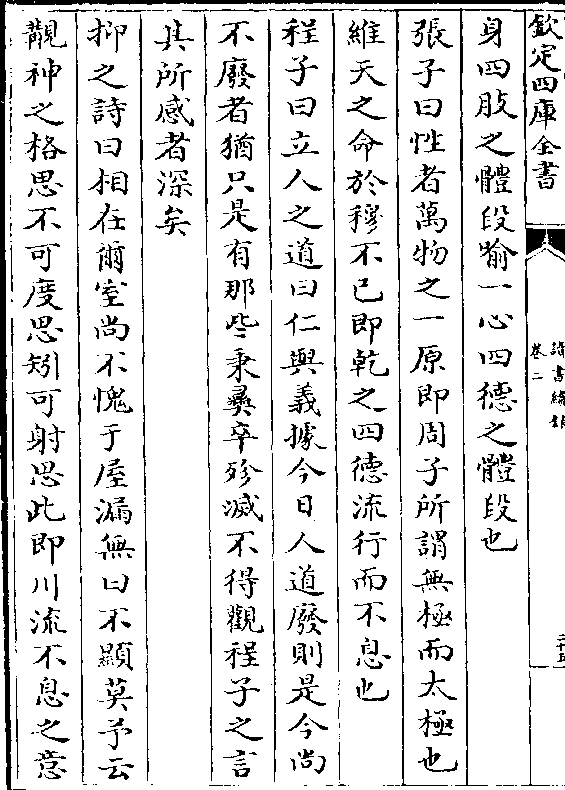 欽定四庫全書
讀書續錄
卷二
二十五
身四肢之體段猶一心四德之體段也
張子曰性者萬物之一原即周子所謂無極而太極也
維天之命於穆不已即乾之四德流行而不息也
程子曰立人之道曰仁與義據今日人道廢則是今尚
不廢者猶只是有那些秉彞卒殄滅不得觀程子之言
其所感者深矣
抑之詩曰相在爾室尚不愧于屋漏無曰不顯莫予云
覯神之格思不可度思矧可射思此即川流不息之意